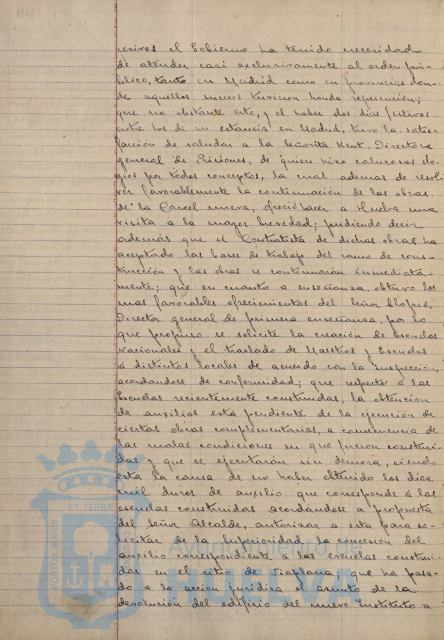 cesivos el Gobierno ha tenido necesidad
de atender casi exclusivamente al orden pú-
blico, tanto en Madrid como en provincias don-
de aquellos sucesos tuvieron honda repercusión;
que no obstante esto, y el haber dos días festivos
entre los de su estancia en Madrid, tuvo la satis-
facción de saludar a la Señorita Kent, Directora
general de Prisiones, de quien hizo calurosos elo-
gios por todos conceptos, la cual además de resol-
ver favorablemente la continuación de las obras
de la Carcel nueva, ofreció hacer a Huelva una
visita a la mayor brevedad; pudiendo decir
además que el Contratista de dichas obras ha
aceptado las bases de trabajo del ramo de cons-
trucción y las obras se continuarán inmediata-
mente; que en cuanto a enseñanza, obtuvo los
mas favorables ofrecimientos del Señor Llopis,
Director general de primera enseñanza, por lo
que propuso se solicite la creación de Escuelas
Nacionales y el traslado de Maestros y Escuelas
a distintos locales de acuerdo con la Inspección,
acordandose de conformidad; que respecto a las
Escuelas recientemente construidas, la obtención
de auxilios está pendiente de la ejecución de
ciertas obras complementarias, a consecuencia de
las malas condiciones en que fueron construi-
das y que se ejecutarán sin demora, siendo
esta la causa de no haber obtenido los diez
mil duros de auxilio que corresponde a las
escuelas construidas acordandose a propuesta
del Señor Alcalde, autorizar a este para so-
licitar de la Superioridad, la concesión del
auxilio correspondiente a las Escuelas construi-
das en el sitio de Viaplana; que ha pasa-
do a la acción juridica el asunto de la
devolución del edificio del nuevo Instituto a
PORTUS MARIS
ET TERRÆ
Ayuntamiento
HUELVA